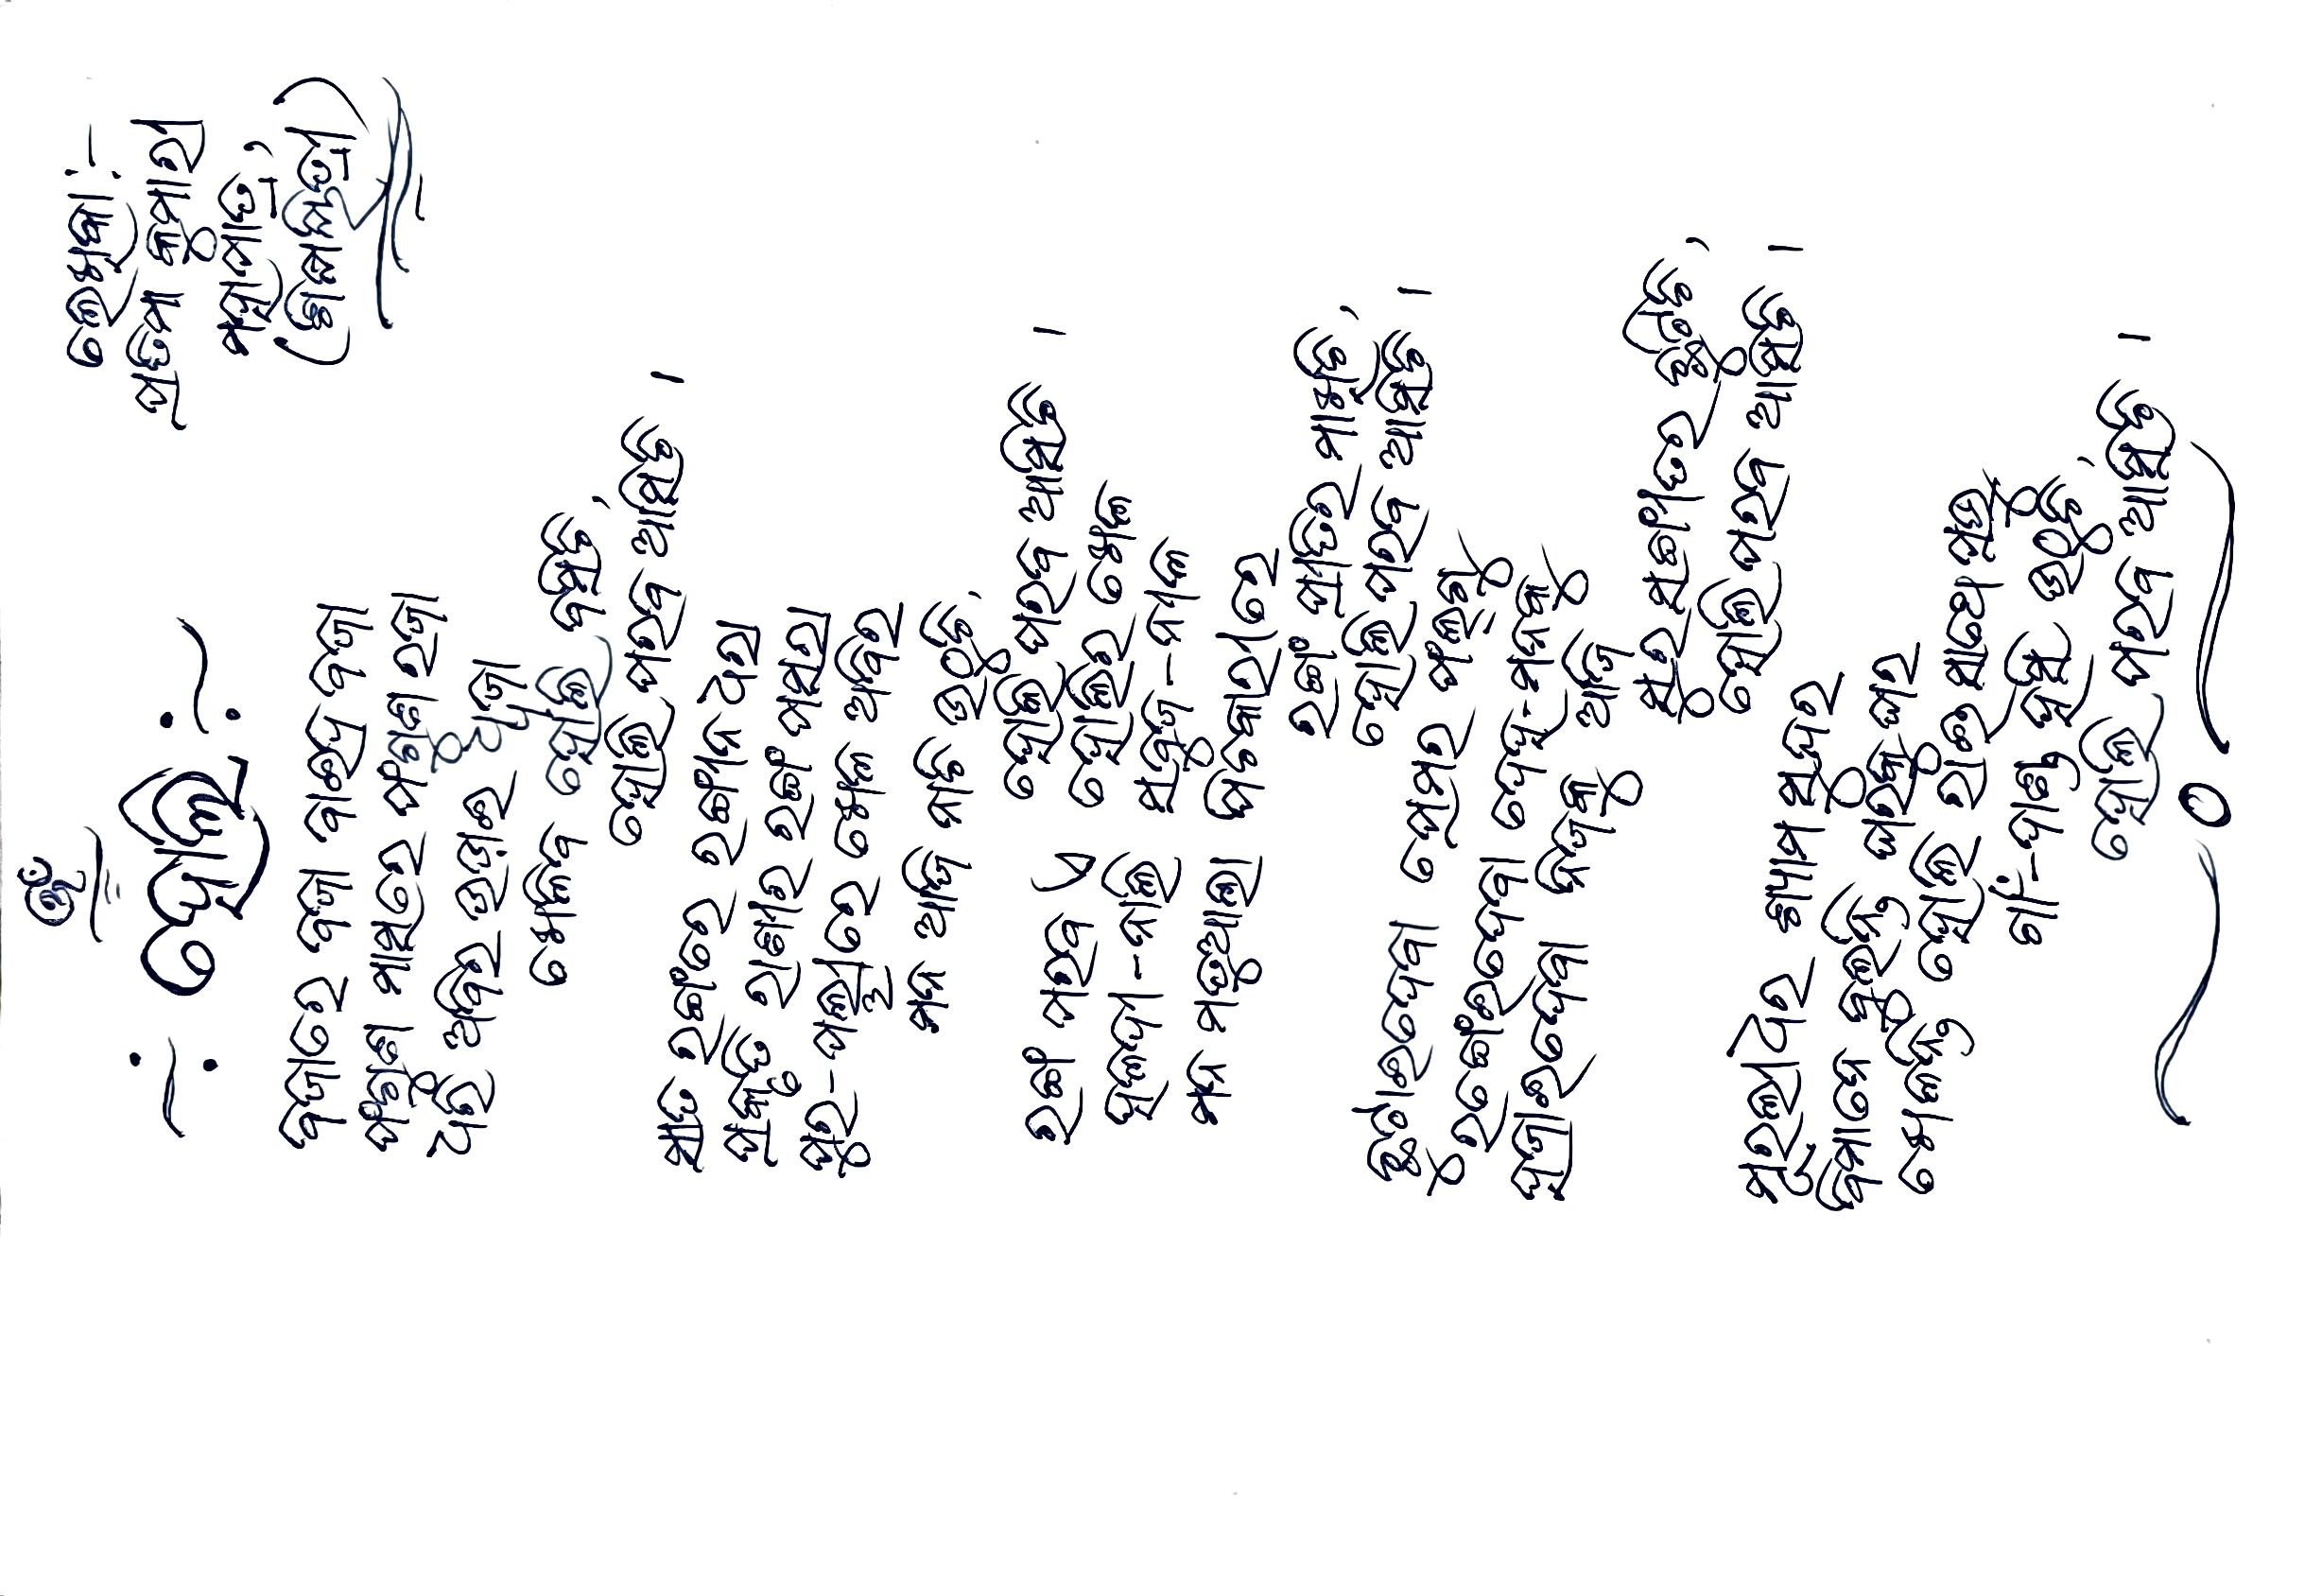 ଓଁ
-: ହୋଲି :-
ଲେଖିକା:-
ପ୍ରତିମା କୁମାରୀ
ମହାପାତ୍ର,
(ଶିକ୍ଷୟିତ୍ରୀ)
ବଜାରେ ବଜା ବାଇଦ ବଜା
ଫଗୁଣ ମାସରେ ଫଗୁଣ ରଜା
ଧରି ଅବିର ଉଡ଼ାଇ ଧ୍ୱଜା
ଖେଳିବ ହୋଲି ବସିଚି,
ହୋଲି ପରବ ଆସିଚି ।
ସାତ ରଙ୍ଗରେ ରଙ୍ଗୀନ ଧରା
ପ୍ରକୃତି ରାଣୀର ରଙ୍ଗ ପସରା
ପୁର-ପଲ୍ଲୀରେ ଖେଳ ଅବିର
ମନ ଆଜି ନାଚି ଉଠୁଚି,
ହୋଲି ପରବ ଆସିଚି ।
ରଙ୍ଗ ପରବ ଏ ହୋଲିର ଖେଳ
ହଳଦୀ-ନାଲି ସବୁଜ-ନୀଳ
ମନ ମତୁଆଲା ପିଚକାରୀରେ
ରଙ୍ଗ ପ୍ରୀତିର ମାଖିଚି,
ହୋଲି ପରବ ଆସିଚି ।
ଛୁଟାଇଦେବା ପ୍ରେମର ଫଲ୍‌ଗୁ
ରଙ୍ଗେଇଦେବା ଦେହ-ମନକୁ
ହଜାଇଦେବା ନିଜକୁ ଆଜି
ସୁର ସଙ୍ଗୀତର ଛୁଟିଚି,
ହୋଲି ପରବ ଆସିଚି ।
ମୂରଲୀଧର ଶ୍ୟାମ ସୁନ୍ଦର
ବିମାନେ ବୁଲନ୍ତି ଘରକୁ ଘର
ଖେଳନ୍ତି ହୋଲି ରାଇ ସାଥେ ପ୍ରଭୁ
ଗାଁ-ଦାଣ୍ଡ ହସି ଉଠୁଚି,
ହୋଲି ପରବ ଆସିଚି ।